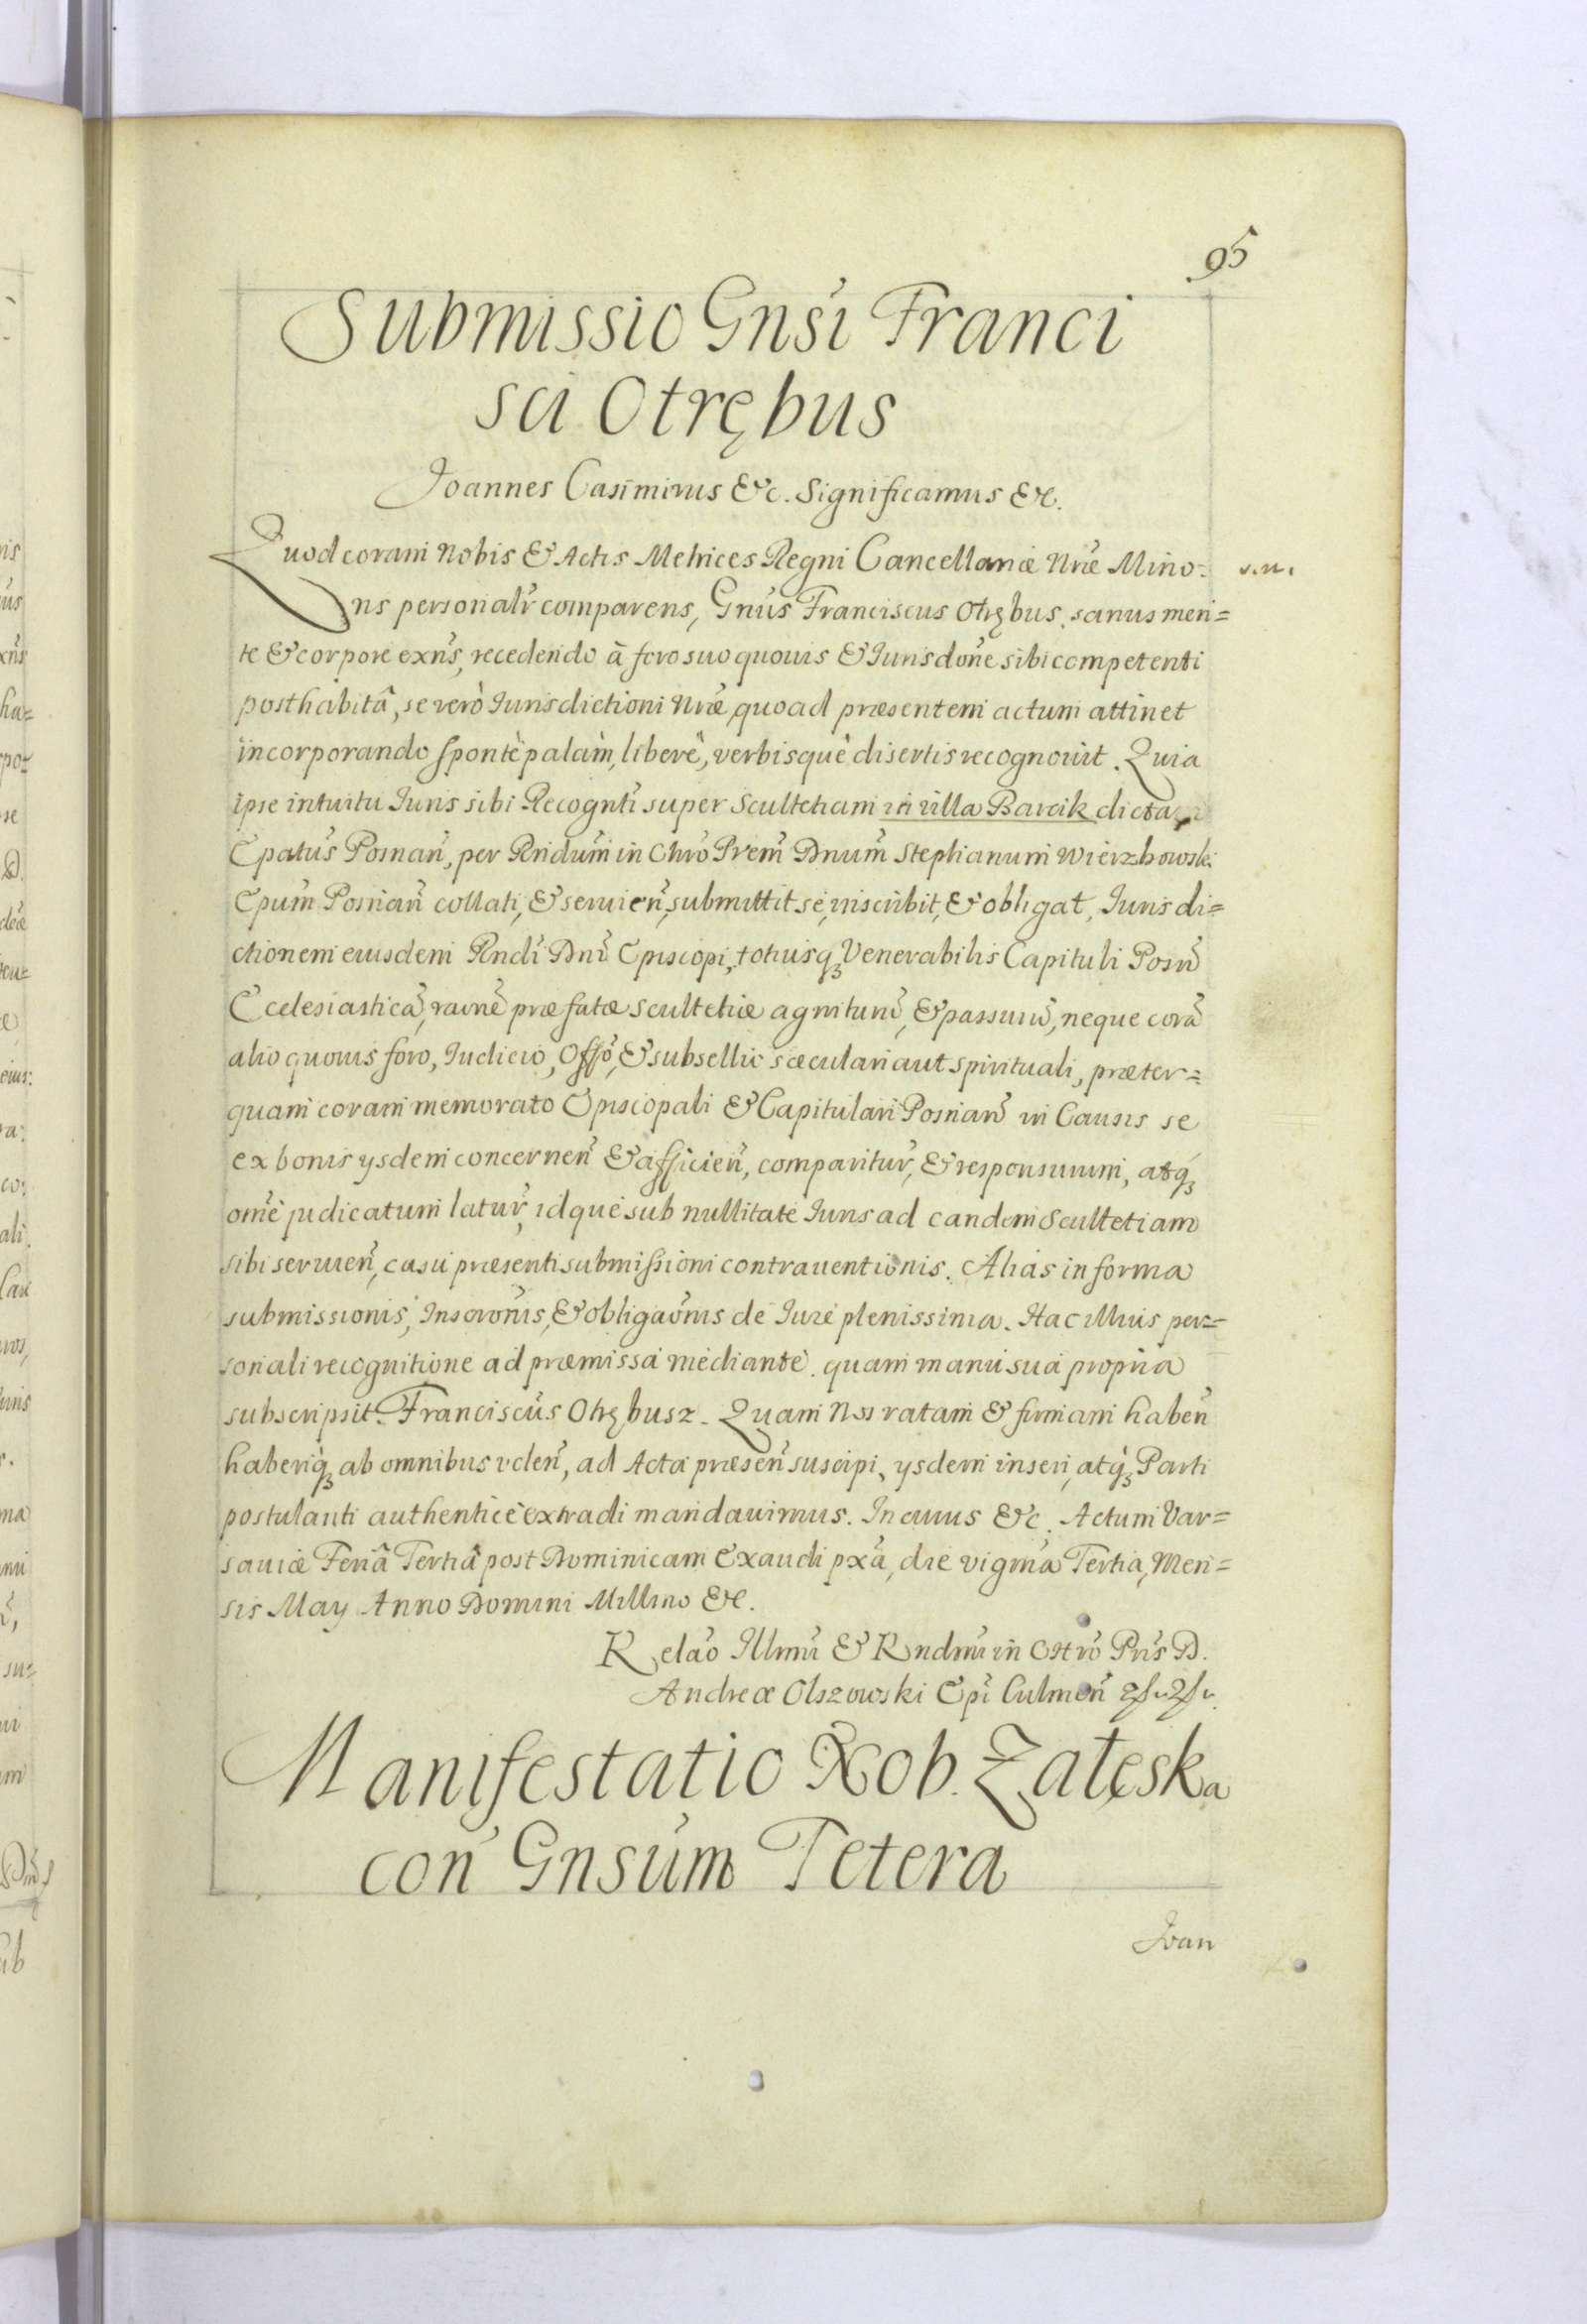 95
Submissio Gnsi Franci
sci Otrębus
Joannes Casimirus &c. Significamus &c.
Quod coram Nobis & Actis Metrices Regni Cancellariæ Nræ Mino=
ris personalr comparens, Gnus Franciscus Otrębus, sanus men=
te & corpore exns, recedendo à foro suo quouis & Iurisdone sibi competenti
posthabitâ, se verò Iurisdictioni Nræ quoad præsentem actum attinet
incorporando sponte palàm, liberè, verbisque disertis recognouit. Quia
ipse intuitu Iuris sibi Recognti super Scultetiam in villa Barcik dicta
Epatus Posnan, per Rndum in Chro Prem Dnum Stephanum Wierzbowski
Epum Posnan collati, & seruien, submittit se, inscribit, & obligat, Iurisdi=
ctionem eiusdem Rndi Dni Episcopi, totiusq Venerabilis Capituli Posn
Ecclesiasticã, raõne præfatæ scultetiæ agniturũ, & passurũ, neque corã
alio quouis foro, Iudicio, Offo, & subsellio sæculari aut spirituali, præter=
quam coram memorato Episcopali & Capitulari Posnan in Causis se
ex bonis ysdem concernen & afficien, compariturũ, & responsurum, atq
ome judicatum latur, idque sub nullitate Iuris ad eandem Scultetiam
sibi seruien, casu præsenti submissioni contrauentionis. Alias in forma
submissionis, Inscronis, & obligaonis de Iure plenissima. Hac illius per=
sonali recognitione ad præmissa mediante. quam manu sua propria
subscripsit. Franciscus Otrębusz. Quam Nos ratam & firmam haben
haberiq ab omnibus volen, ad Acta præsen suscipi, ysdem inseri, atq Parti
postulanti authenticè extradi mandauimus. In cuius &c. Actum Var=
sauiæ Feriâ Tertiâ post Dominicam Exaudi pxa, die vigma Tertia, Men=
sis May Anno Domini Millmo &c.
Relao Illmi & Rndmi in Chro Pris D.
Andreæ Olszowski Epi Culmen
Manifestatio Nob. Załęska
con Gnsum Tetera
Joan